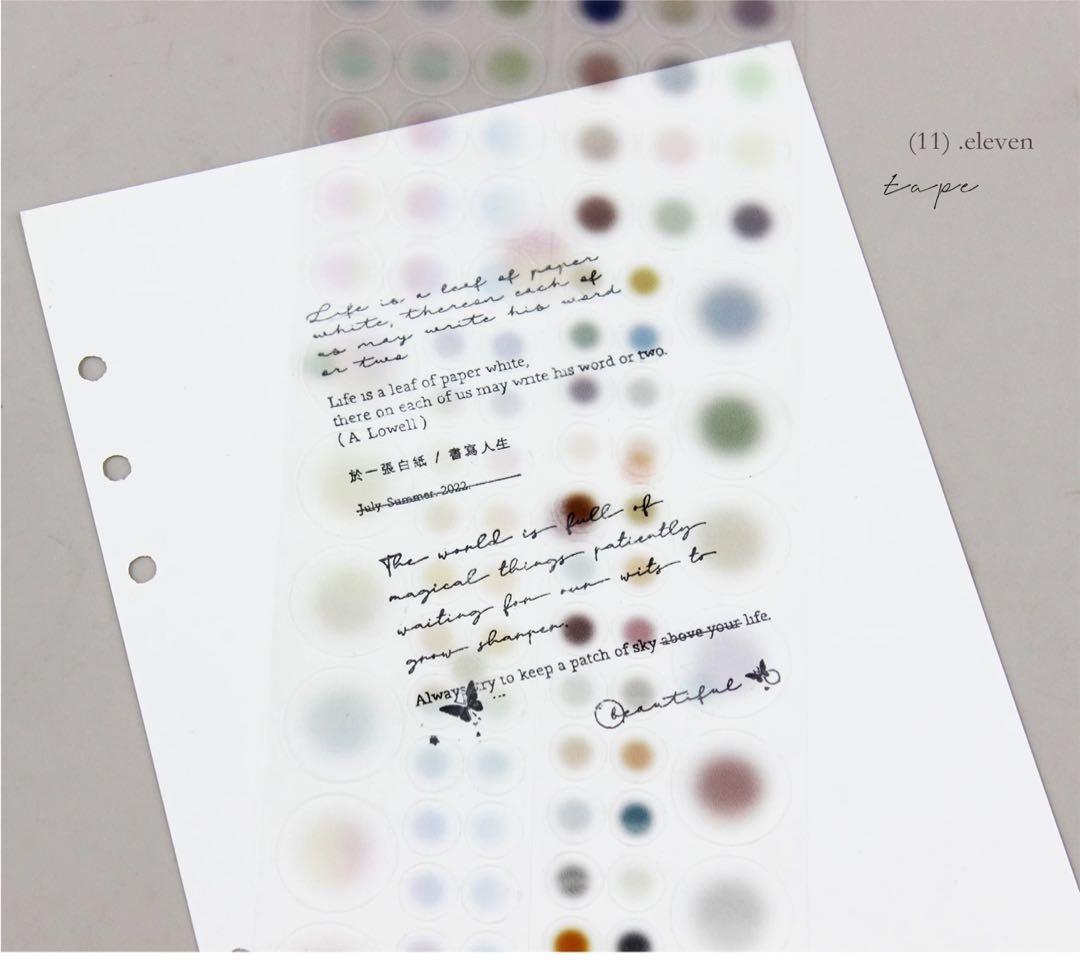 (11) .eleven
tape
Life is a leaf of paper
white, thereon each of
us may write his word
or two
Life is a leaf of paper white,
there on each of us may write his word or two.
(A Lowell)
於一張白紙 / 書寫人生
July Summer. 2022.
The world is full of
magical things patiently
waiting for our wits to
grow sharper.
Always try to keep a patch of sky above your life.
beautiful